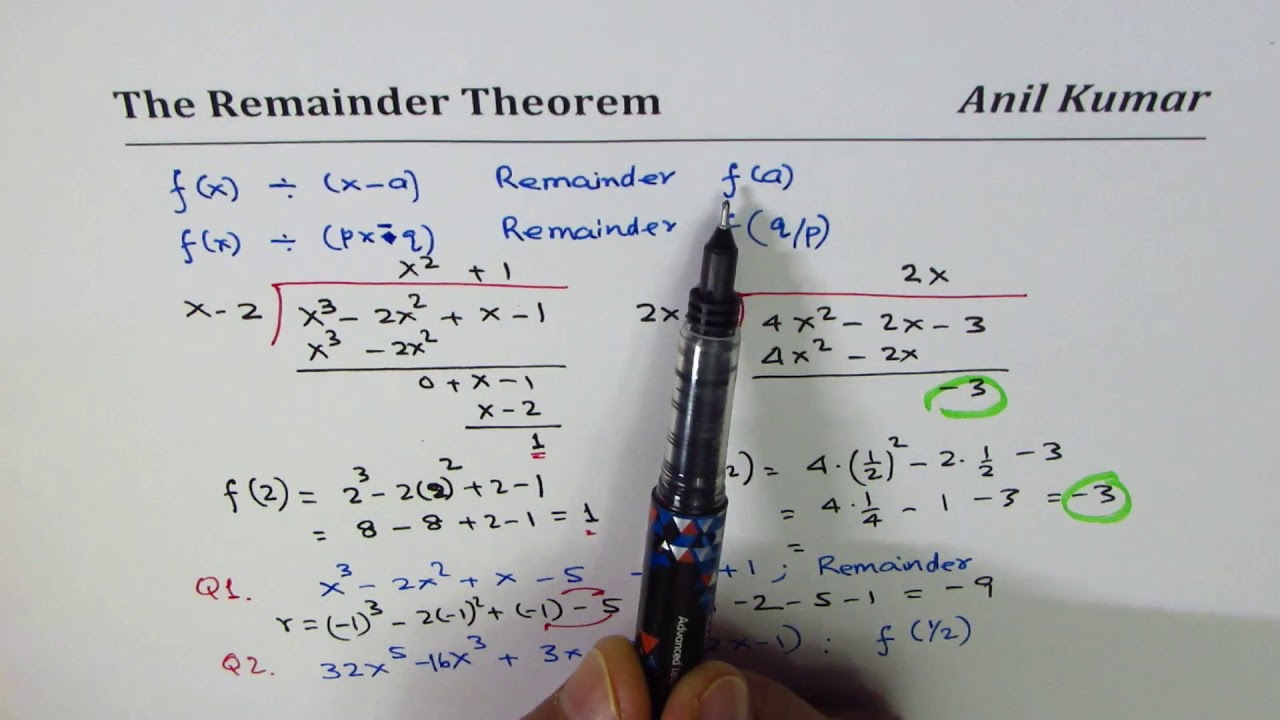 The Remainder Theorem Anil Kumar
f(x) ÷ (x-a) Remainder f(a)
f(x) ÷ (px-q) Remainder (q/p)
x² + 1 2x
x-2 x³ - 2x² + x - 1 2x 4x² - 2x - 3
x³ - 2x² 4x² - 2x
0 + x - 1 - 3
x - 2
1
f(2) = 2³ - 2(2)² + 2 - 1 2) = 4·(½)² - 2·½ - 3
= 8 - 8 + 2 - 1 = 1 = 4·¼ - 1 - 3 = -3
=
Q1. x³ - 2x² + x - 5 +1 ; Remainder
r = (-1)³ - 2(-1)² + (-1) - 5 - 2 - 5 - 1 = - 9
Q2. 32x⁵ - 16x³ + 3x x-1) : f(1/2)
Advanced